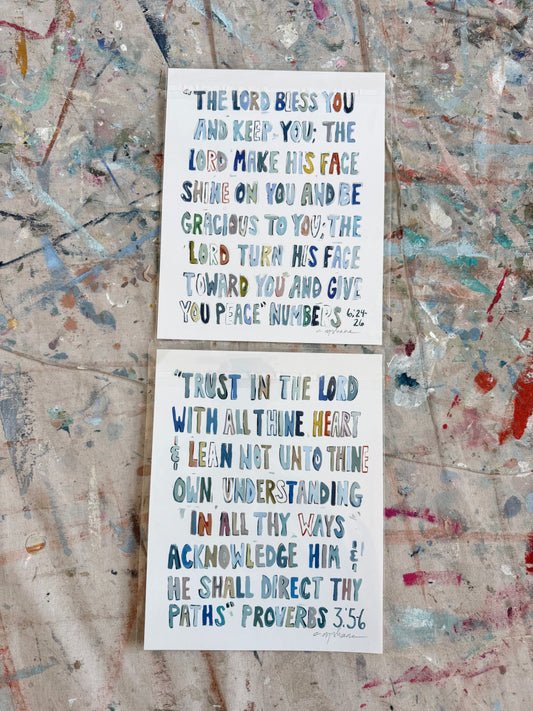 "THE LORD BLESS YOU
AND KEEP YOU; THE
LORD MAKE HIS FACE
SHINE ON YOU AND BE
GRACIOUS TO YOU; THE
LORD TURN HIS FACE
TOWARD YOU AND GIVE
YOU PEACE" NUMBERS 6:24-
26
"TRUST IN THE LORD
WITH ALL THINE HEART
& LEAN NOT UNTO THINE
OWN UNDERSTANDING
"IN ALL THY WAYS
ACKNOWLEDGE HIM &
HE SHALL DIRECT THY
PATHS" PROVERBS 3:56